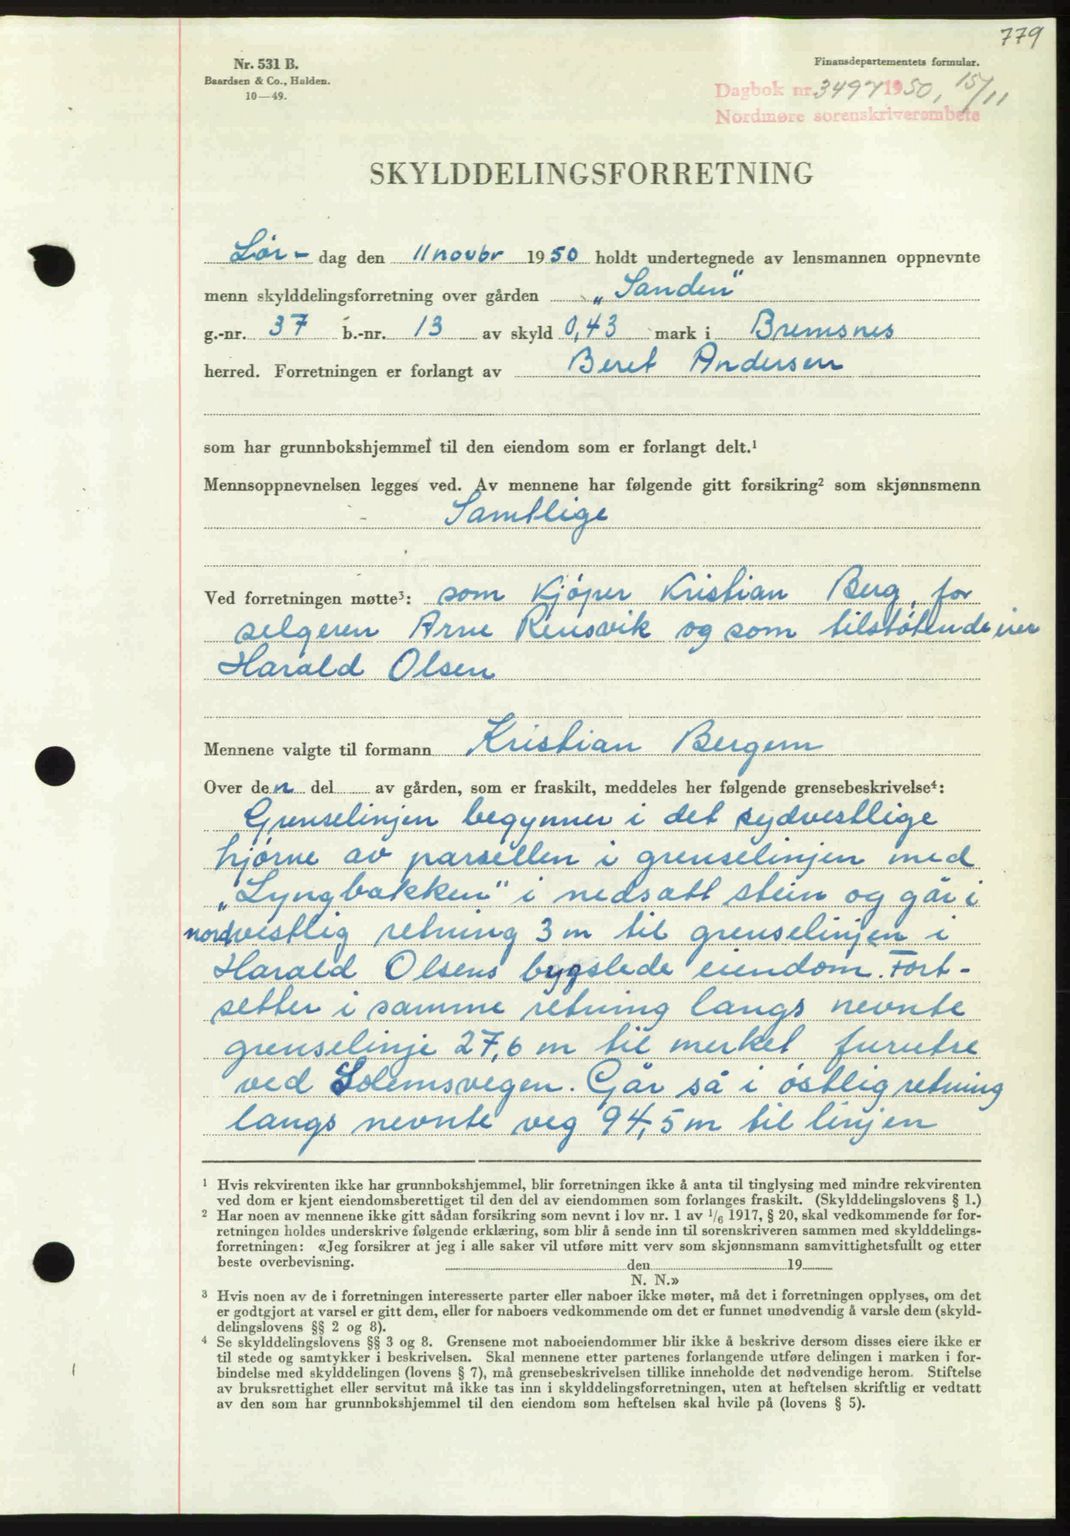 779
Nr. 531 B.
Baardsen & Co., Halden.
10—49.
Finansdepartementets formular.
Dagbok nr. 3497 1950, 15/11
Nordmøre sorenskriverembete
SKYLDDELINGSFORRETNING
Lør- dag den 11 novbr 1950 holdt undertegnede av lensmannen oppnevnte
menn skylddelingsforretning over gården „Sanden"
g.-nr. 37 b.-nr. 13 av skyld 0,43 mark i Bremsnes
herred. Forretningen er forlangt av Beret Andersen
som har grunnbokshjemmel til den eiendom som er forlangt delt.¹
Mennsoppnevnelsen legges ved. Av mennene har følgende gitt forsikring² som skjønnsmenn
Samtlige
Ved forretningen møtte³: som kjøper Kristian Berg, for
selgeren Arne Rensvik og som tilstøtende eier
Harald Olsen
Mennene valgte til formann Kristian Bergem
Over den del av gården, som er fraskilt, meddeles her følgende grensebeskrivelse⁴:
Grenselinjen begynner i det sydvestlige
hjørne av parsellen i grenselinjen med
„Lyngbakken" i nedsatt stein og går i
nordvestlig retning 3 m til grenselinjen i
Harald Olsens bygslede eiendom. Fort-
setter i samme retning langs nevnte
grenselinje 27,6 m til merket furutre
ved Solemsvegen. Går så i østlig retning
langs nevnte veg 94,5 m til linjen
¹ Hvis rekvirenten ikke har grunnbokshjemmel, blir forretningen ikke å anta til tinglysing med mindre rekvirenten
ved dom er kjent eiendomsberettiget til den del av eiendommen som forlanges fraskilt. (Skylddelingslovens § 1.)
² Har noen av mennene ikke gitt sådan forsikring som nevnt i lov nr. 1 av 1/6 1917, § 20, skal vedkommende før for-
retningen holdes underskrive følgende erklæring, som blir å sende inn til sorenskriveren sammen med skylddelings-
forretningen: «Jeg forsikrer at jeg i alle saker vil utføre mitt verv som skjønnsmann samvittighetsfullt og etter
beste overbevisning. den 19
N. N.»
³ Hvis noen av de i forretningen interesserte parter eller naboer ikke møter, må det i forretningen opplyses, om det
er godtgjort at varsel er gitt dem, eller for naboers vedkommende om det er funnet unødvendig å varsle dem (skyld-
delingslovens §§ 2 og 8).
⁴ Se skylddelingslovens §§ 3 og 8. Grensene mot naboeiendommer blir ikke å beskrive dersom disses eiere ikke er
til stede og samtykker i beskrivelsen. Skal mennene etter partenes forlangende utføre delingen i marken i for-
bindelse med skylddelingen (lovens § 7), må grensebeskrivelsen tillike inneholde det nødvendige herom. Stiftelse
av bruksrettighet eller servitut må ikke tas inn i skylddelingsforretningen, uten at heftelsen skriftlig er vedtatt
av den som har grunnbokshjemmel til den eiendom som heftelsen skal hvile på (lovens § 5).